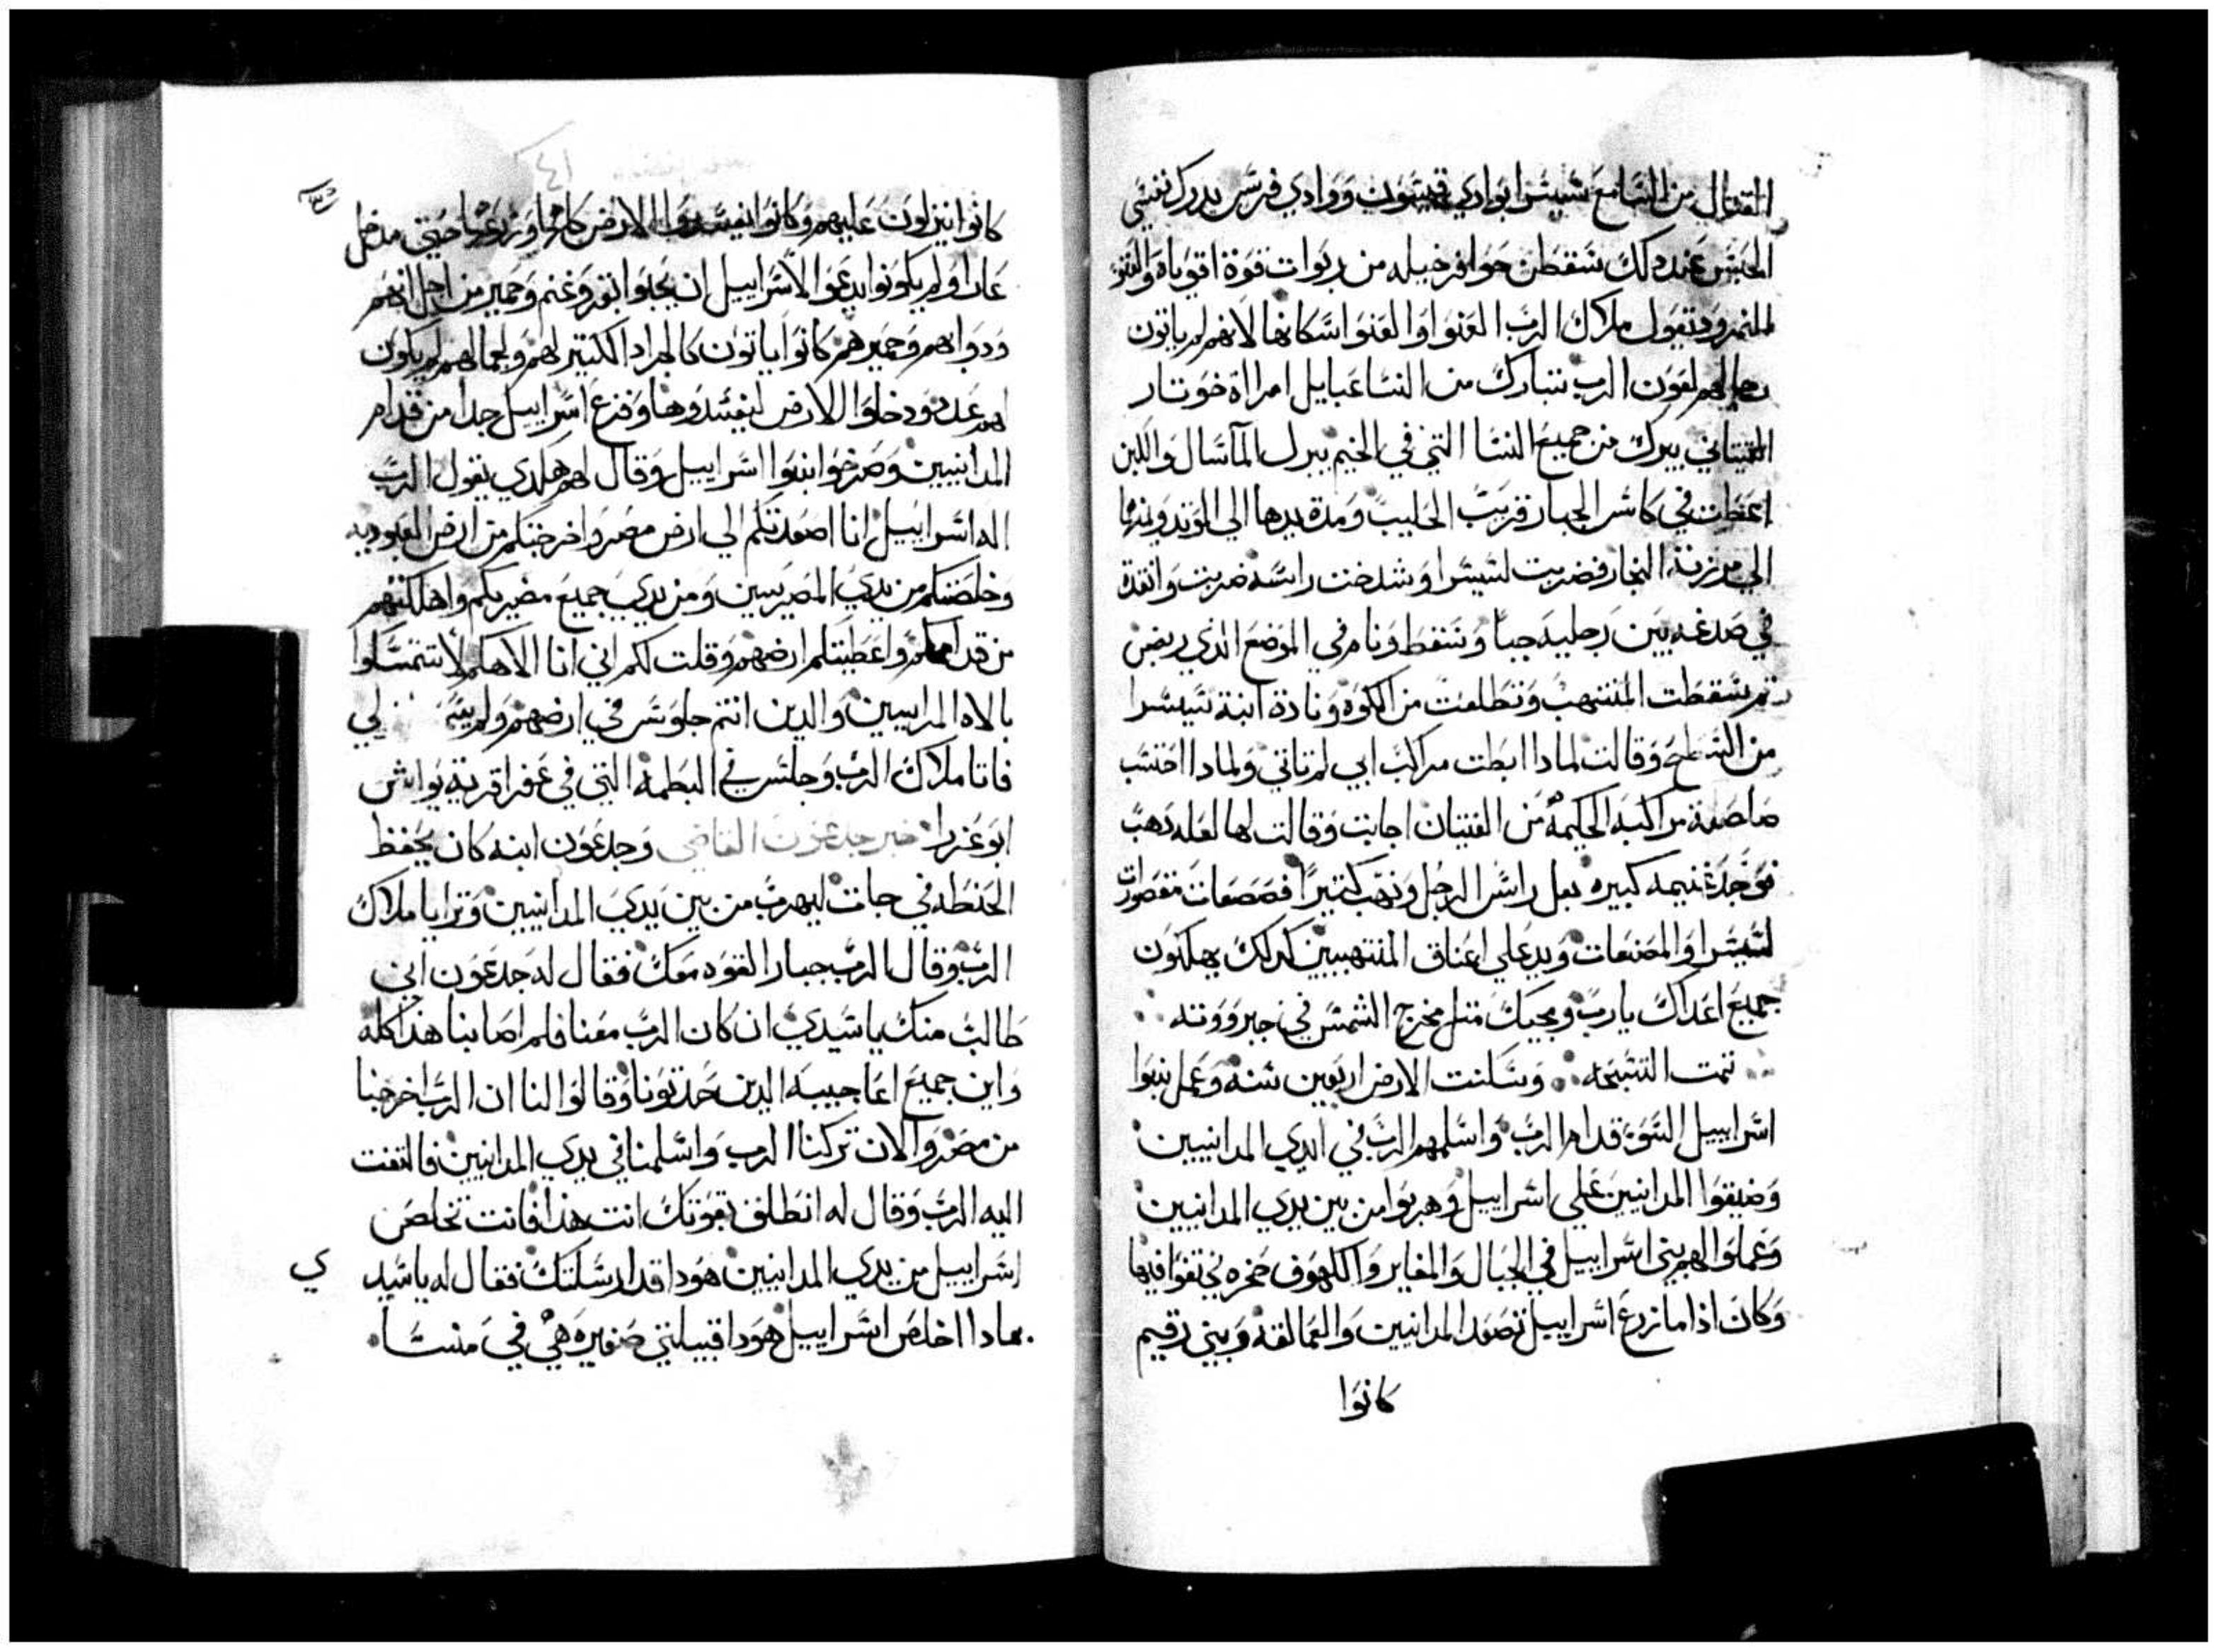 القتال من السامع شيشرا بوادي قيسون ووادي فرسن يدرك نفسي
الحبس عند دلك سقطن حوافر خيله من ربوات قوة اقوياه والغنو
المنمرود تقول ملاك الرب العنوا والعنوا اسكانها لانهم لم ياتون
رجالهم لعون الرب تتبارك من النسا عبايل امراة خوتار
القيناني يبرك من جميع النسا التي في الخيم يبرك المآسال واللبن
اعطت في كاس الجبار قربت الحليب ومدة يدها الي الوتد ويمنها
الي مرزنة النجار فضربت لشيشرا وشدخت راسه ضربت وانقدة
في صدغه بين رجليه جبا وسقط ونام في الموضع الذي ربض
ثم سقطت المنتهب وتطلعت من الكوه ونادة ابنة شيشرا
من السطح وقالت لمادا ابطت مراكب ابي لم تاتي ولمادا احتسب
صاصفة مراكبه الحكيمة من الفتيان اجابت وقالت لها لعله دهب
فوجد غنيمه كبيره بعل راس الرجل ونهب كتيرا فصصعات مقصورات
لشيشرا والمصنعات ويد علي اعناق المنتهبين كدلك يهلكون
جميع اعداك يارب ومحبيك متل مخرج الشمس في جبرووته
تمت التسبحه وسكنت الارض اربعين سنه وعمل بنوا
اسراييل السوة قدام الرب واسلمهم الرب في ايدي المدانيين
وضيقوا المدانيين علي اسراييل وهربوا من بين يدي المدانيين
وعملوا لهم بني اسراييل في الجبال والمغاير واكلهوف صخره يختفوا فيها
وكان اذا ما زرع اسراييل تصعد المدانيين والعمالقة وبيني رقيم
كانوا
كانوا ينزلون عليهم وكانوا يفسدوا الارض كلها وزرعها حتي مدخل
عادا ولم يكونوا يدعوا لاسراييل ان يحلوا بقر وغنم وحمير من اجل انهم
ودوابهم وحميرهم كانوا ياتون كالجراد الكتير لهم ولجمالهم لم يكون
لهم عدد ودخلوا الارض ليفسدوها وفزع اسراييل جدا من قدام
المدانيين وصرخوا بنوا اسراييل وقال لهم هكدي يقول الرب
اله اسراييل انا اصعدتكم الي ارض مصر واخرجتكم من ارض العبوديه
وخلصتكم من يدي المصريسين ومن يدي جميع مضيريكم واهلكتهم
من قدامكم واعطيتكم ارضهم وقلت لكم اني انا الاهكم لا تتمسكوا
بالاه المدايسين والدين انتم جلوس في ارضهم ولم لي
فاتا ملاك الرب وجلس في البطمة التي في عفرا قرية يواش
ابو عزرا خبر جدعون القاضي وجدعون ابنه كان يحفظ
الحنطه في جات ليهرب من بين يدي المدانيين وترايا ملاك
الرب وقال الرب جبار القوه معك فقال له جدعون اني
طالب منك ياسيدي ان كان الرب معنا فلم اصابنا هذا كله
واين جميع اعاجيبه الدين حدثونا وقالوا لنا ان الرب اخرجنا
من مصر والان تركنا الرب واسلمنا في يدي المدانيين فالتفت
اليه الرب وقال له انطلق بقوتك انت هذا فانت تخلص
اسراييل من يدي المدانيين هودا قد ارسلتك فقال له ياسيد ي
بمادا اخلص اسراييل هودا قبيلتي صغيره هي في منسا